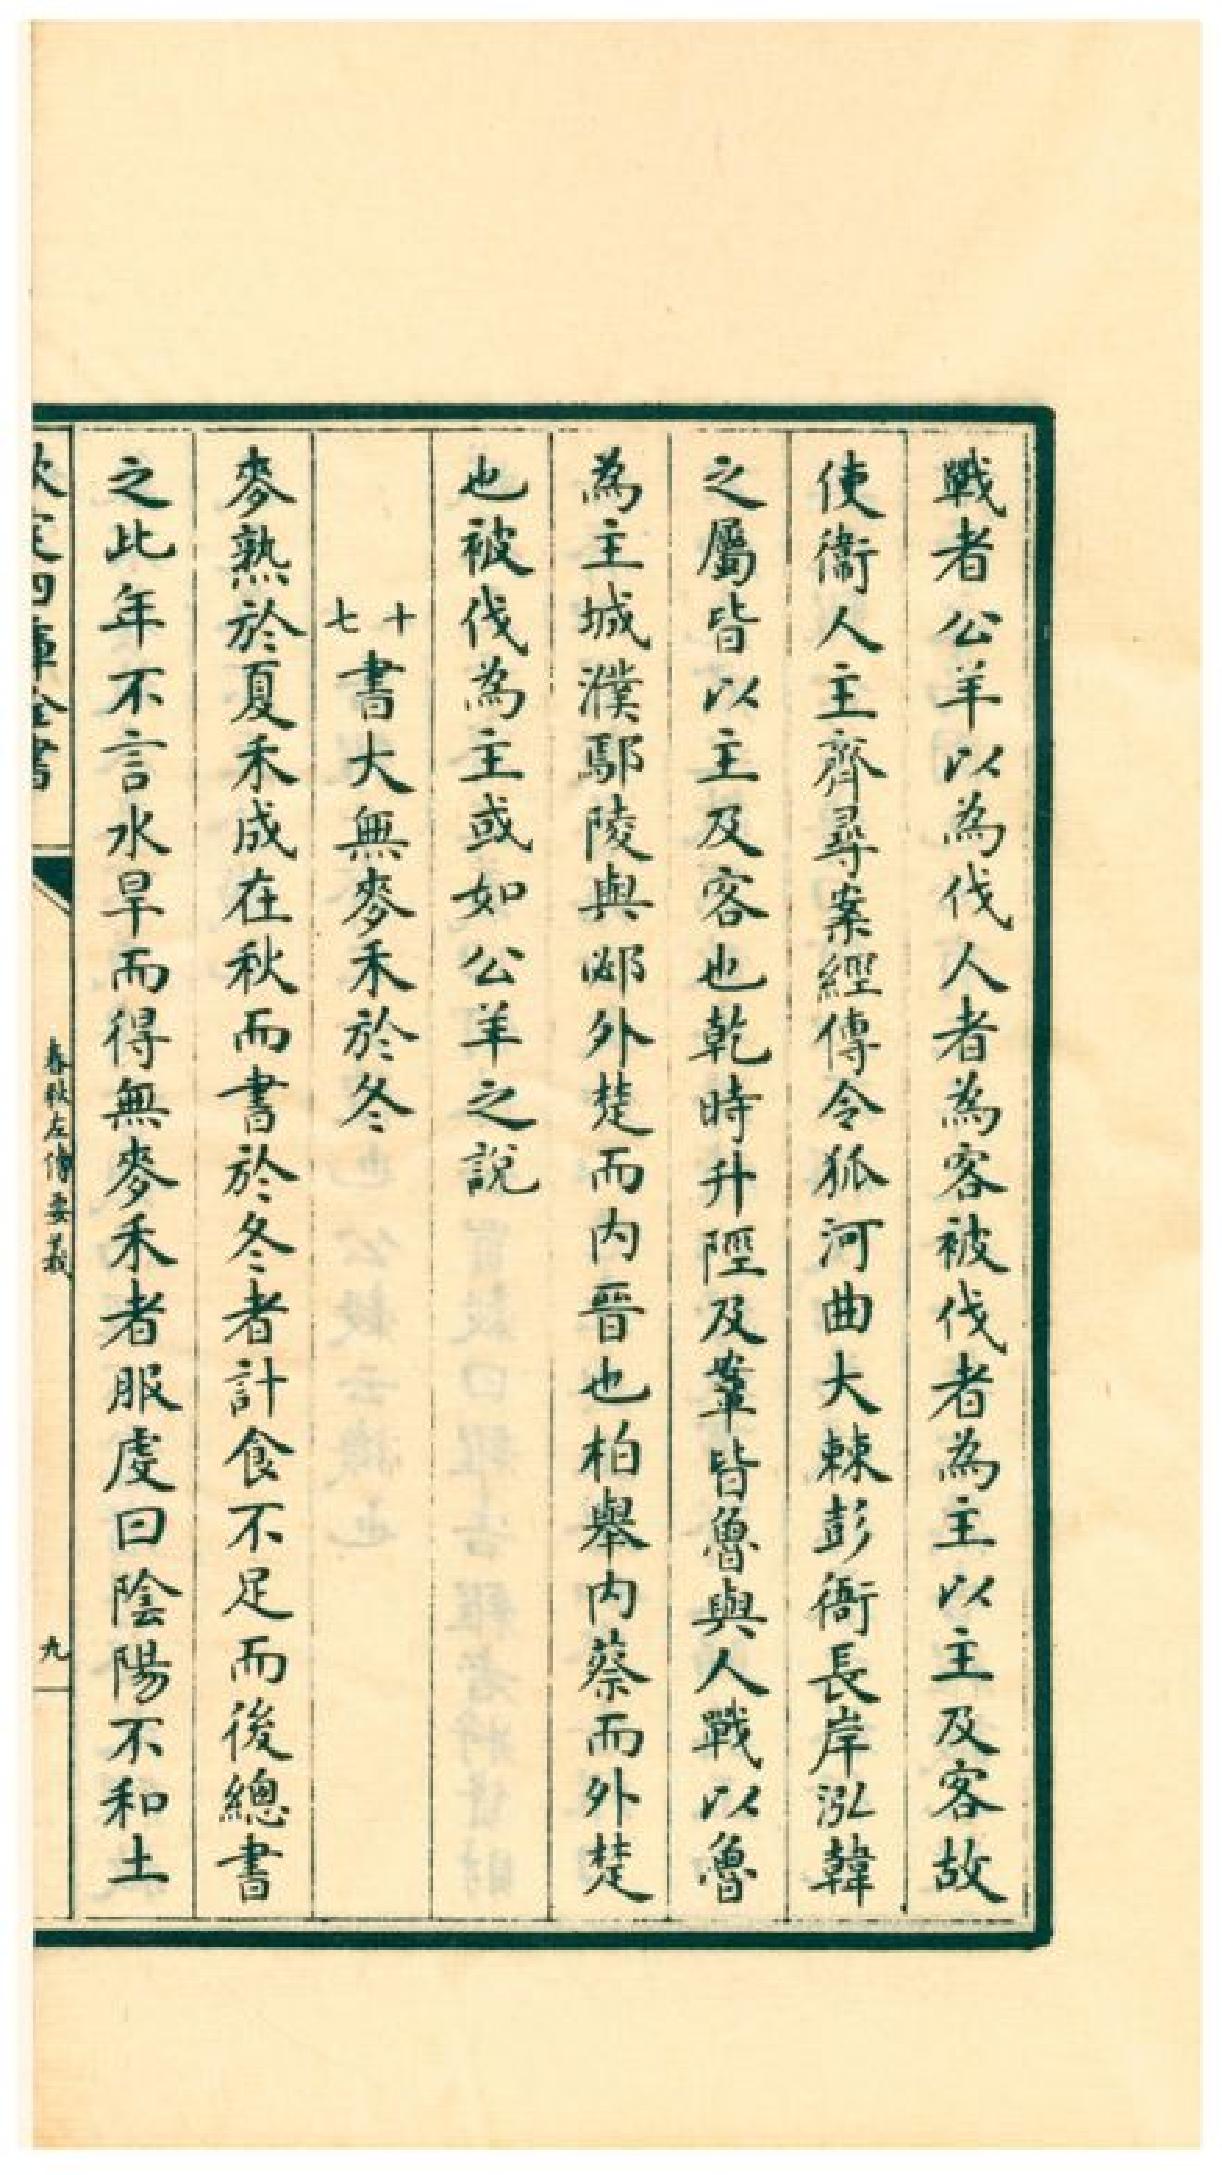 戰者公羊以為伐人者為客被伐者為主以主及客故
使衞人主齊尋案經傳令狐河曲大棘彭衙長岸泓韓
之屬皆以主及客也乾時升陘及鞌皆魯與人戰以魯
為主城濮鄢陵與邲外楚而内晉也柏舉内蔡而外楚
也被伐為主或如公羊之說
十七書大無麥禾於冬
麥熟於夏禾成在秋而書於冬者計食不足而後總書
之此年不言水旱而得無麥禾者服虔曰陰陽不和土
欽定四庫全書
春秋左傳要義
九